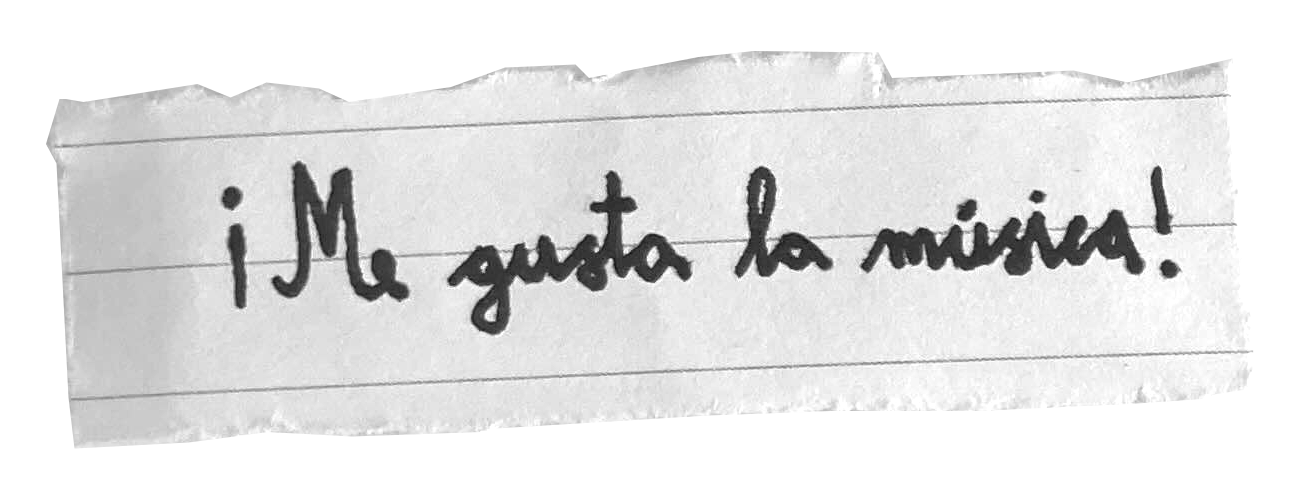 ¡Me gusta la música!